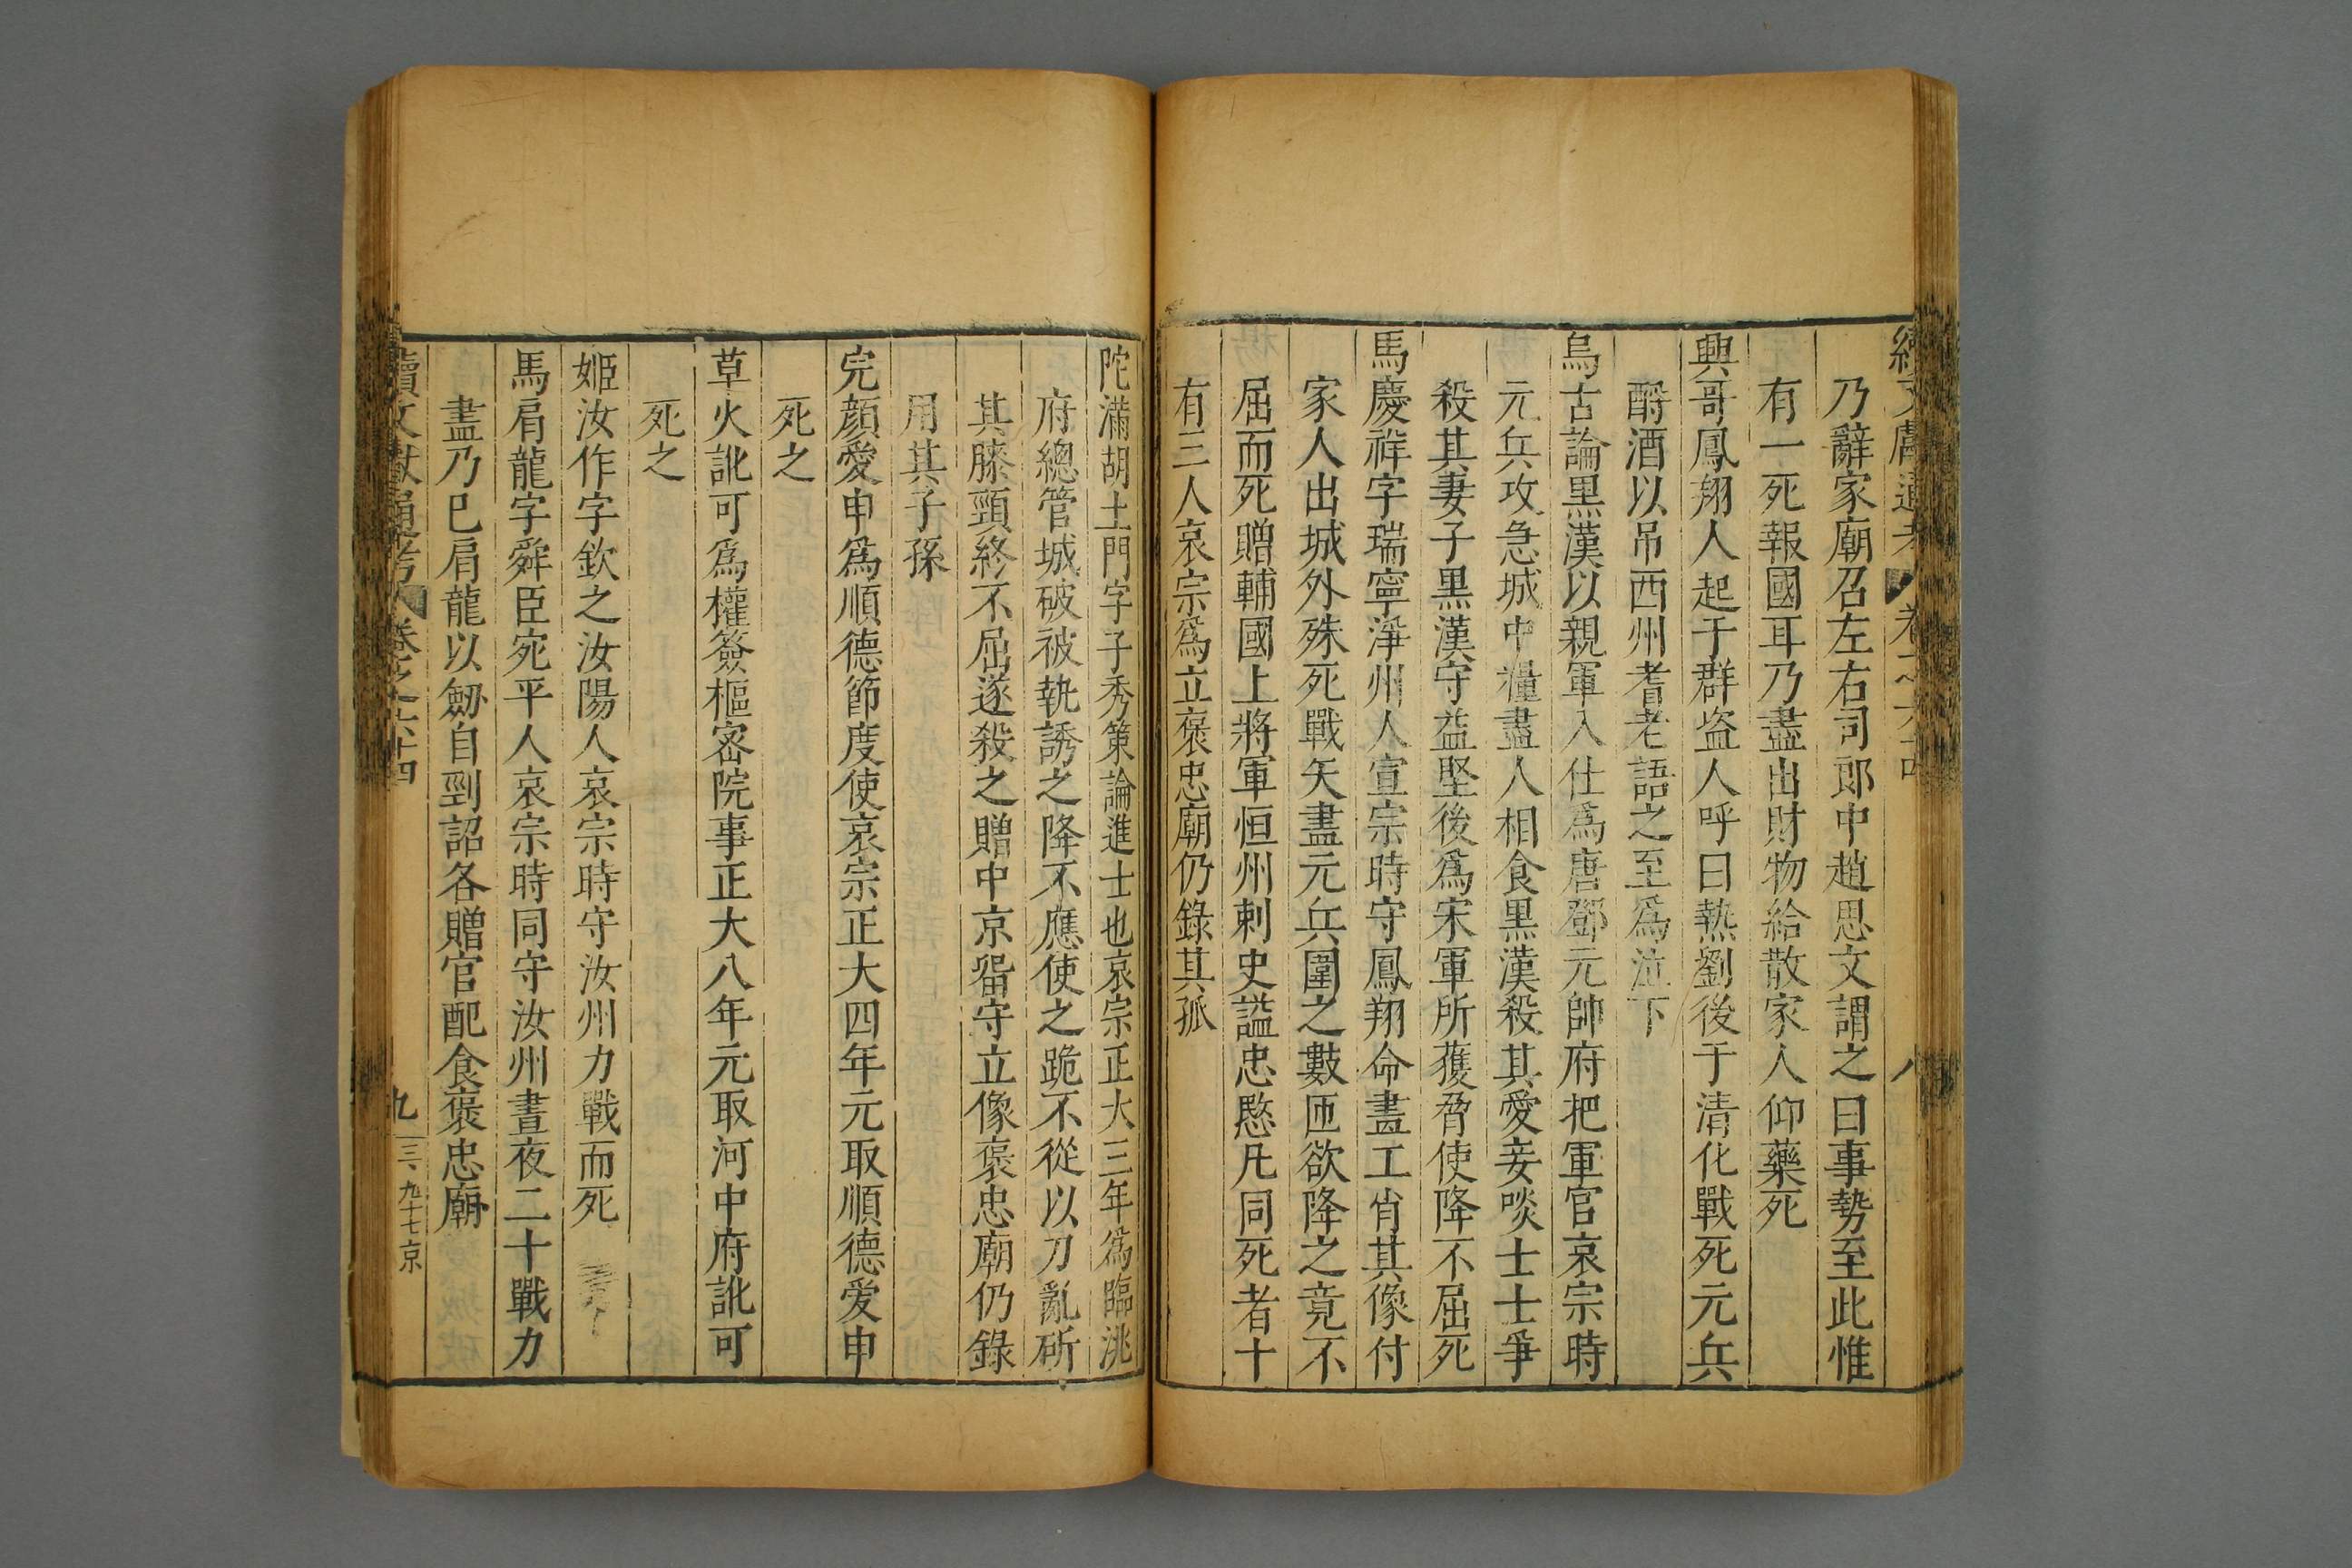 續文獻通考 卷之六十四 八
乃辭家廟召左右司郎中趙思文謂之曰事勢至此惟
有一死報國耳乃盡出財物給散家人仰藥死
興哥鳳翔人起于群盗人呼曰熱劉後于清化戰死元兵
酹酒以吊西州耆老語之至爲泣下
烏古論黒漢以親軍入仕爲唐鄧元帥府把軍官哀宗時
元兵攻急城中糧盡人相食黒漢殺其愛妾啖士士爭
殺其妻子黒漢守益堅後爲宋軍所獲脅使降不屈死
馬慶祥字瑞寧淨州人宣宗時守鳳翔命畫工肖其像付
家人出城外殊死戰矢盡元兵圍之數匝欲降之竟不
屈而死贈輔國上將軍恒州刺史謚忠愍凡同死者十
有三人哀宗爲立褒忠廟仍錄其孤
陀滿胡土門字子秀策論進士也哀宗正大三年爲臨洮
府總管城破被執誘之降不應使之跪不從以刀亂斫
其膝頸終不屈遂殺之贈中京畱守立像褒忠廟仍錄
用其子孫
完顔愛申爲順德節度使哀宗正大四年元取順德愛申
死之
草火訛可爲權簽樞密院事正大八年元取河中府訛可
死之
姬汝作字欽之汝陽人哀宗時守汝州力戰而死
馬肩龍字舜臣宛平人哀宗時同守汝州晝夜二十戰力
盡乃巳肩龍以劒自剄詔各贈官配食褒忠廟
續文獻通考 卷之六十四 九 三、九十七京